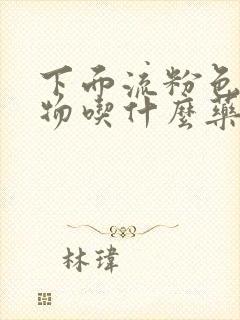 下而流粉色
物喫什麼藥
林瑋